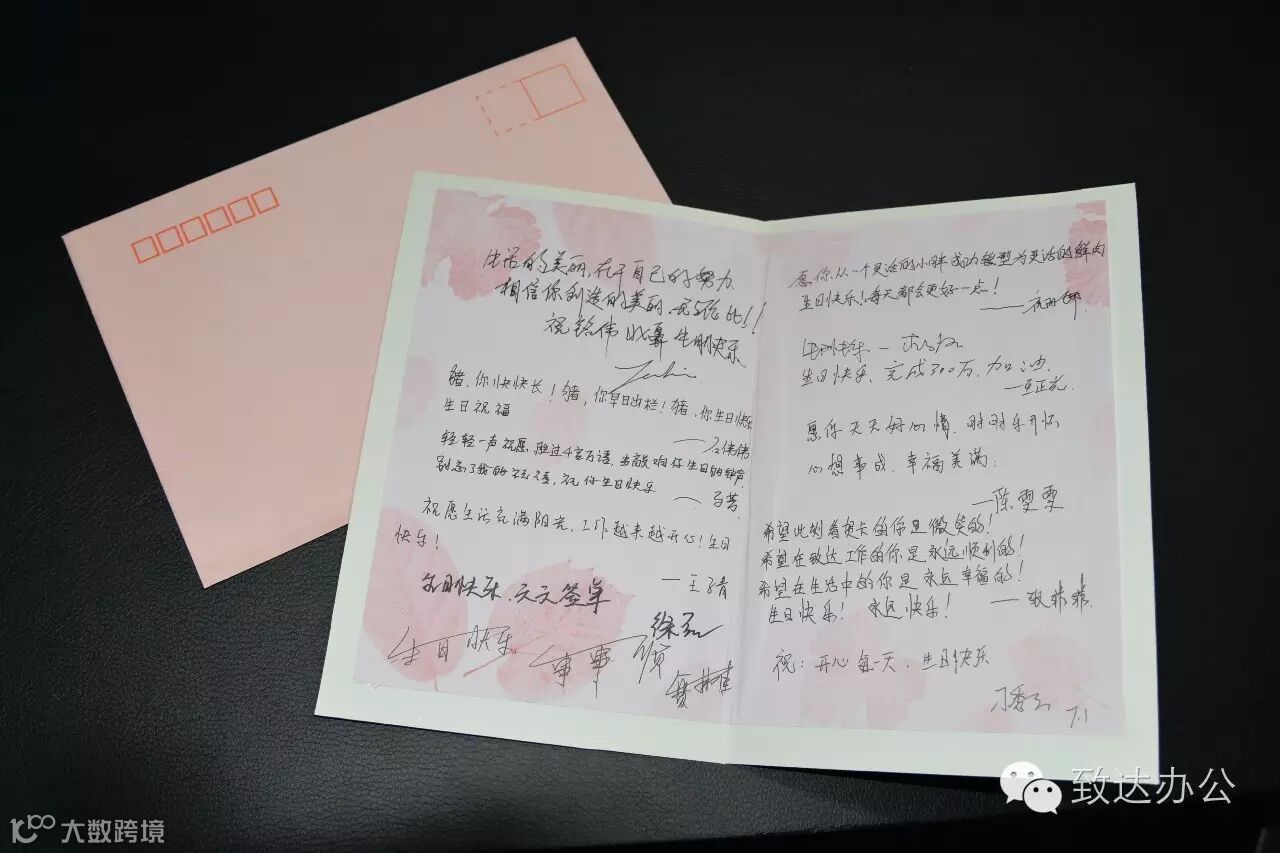 生活的美丽，在于自己的努力
相信你创造的美丽，无与伦比！！
祝铭伟 生日快乐
猪，你快快长！猪，你早日出栏！猪，你生日快乐
生日祝福
——伟伟
轻轻一声祝愿，胜过千言万语，当敲响你生日的钟声
别忘了我的祝福，祝你生日快乐
祝愿生活充满阳光，工作越来越开心！生日
快乐！
——王婧
生日快乐，天天签单
徐
生日快乐 事事顺
愿你从一个灵活的小胖成功转型为灵活的鲜肉
生日快乐！每天都会更好一点！
生日快乐——
生日快乐、完成300万，加油
愿你天天好心情，时时乐开怀
心想事成，幸福美满；
——陈雯雯
希望此刻看贺卡的你是微笑的！
希望在致达工作的你是永远顺利的！
希望在生活中的你是永远幸福的！
生日快乐！永远快乐！
祝：开心每一天，生日快乐
7.1
致达办公
大数跨境